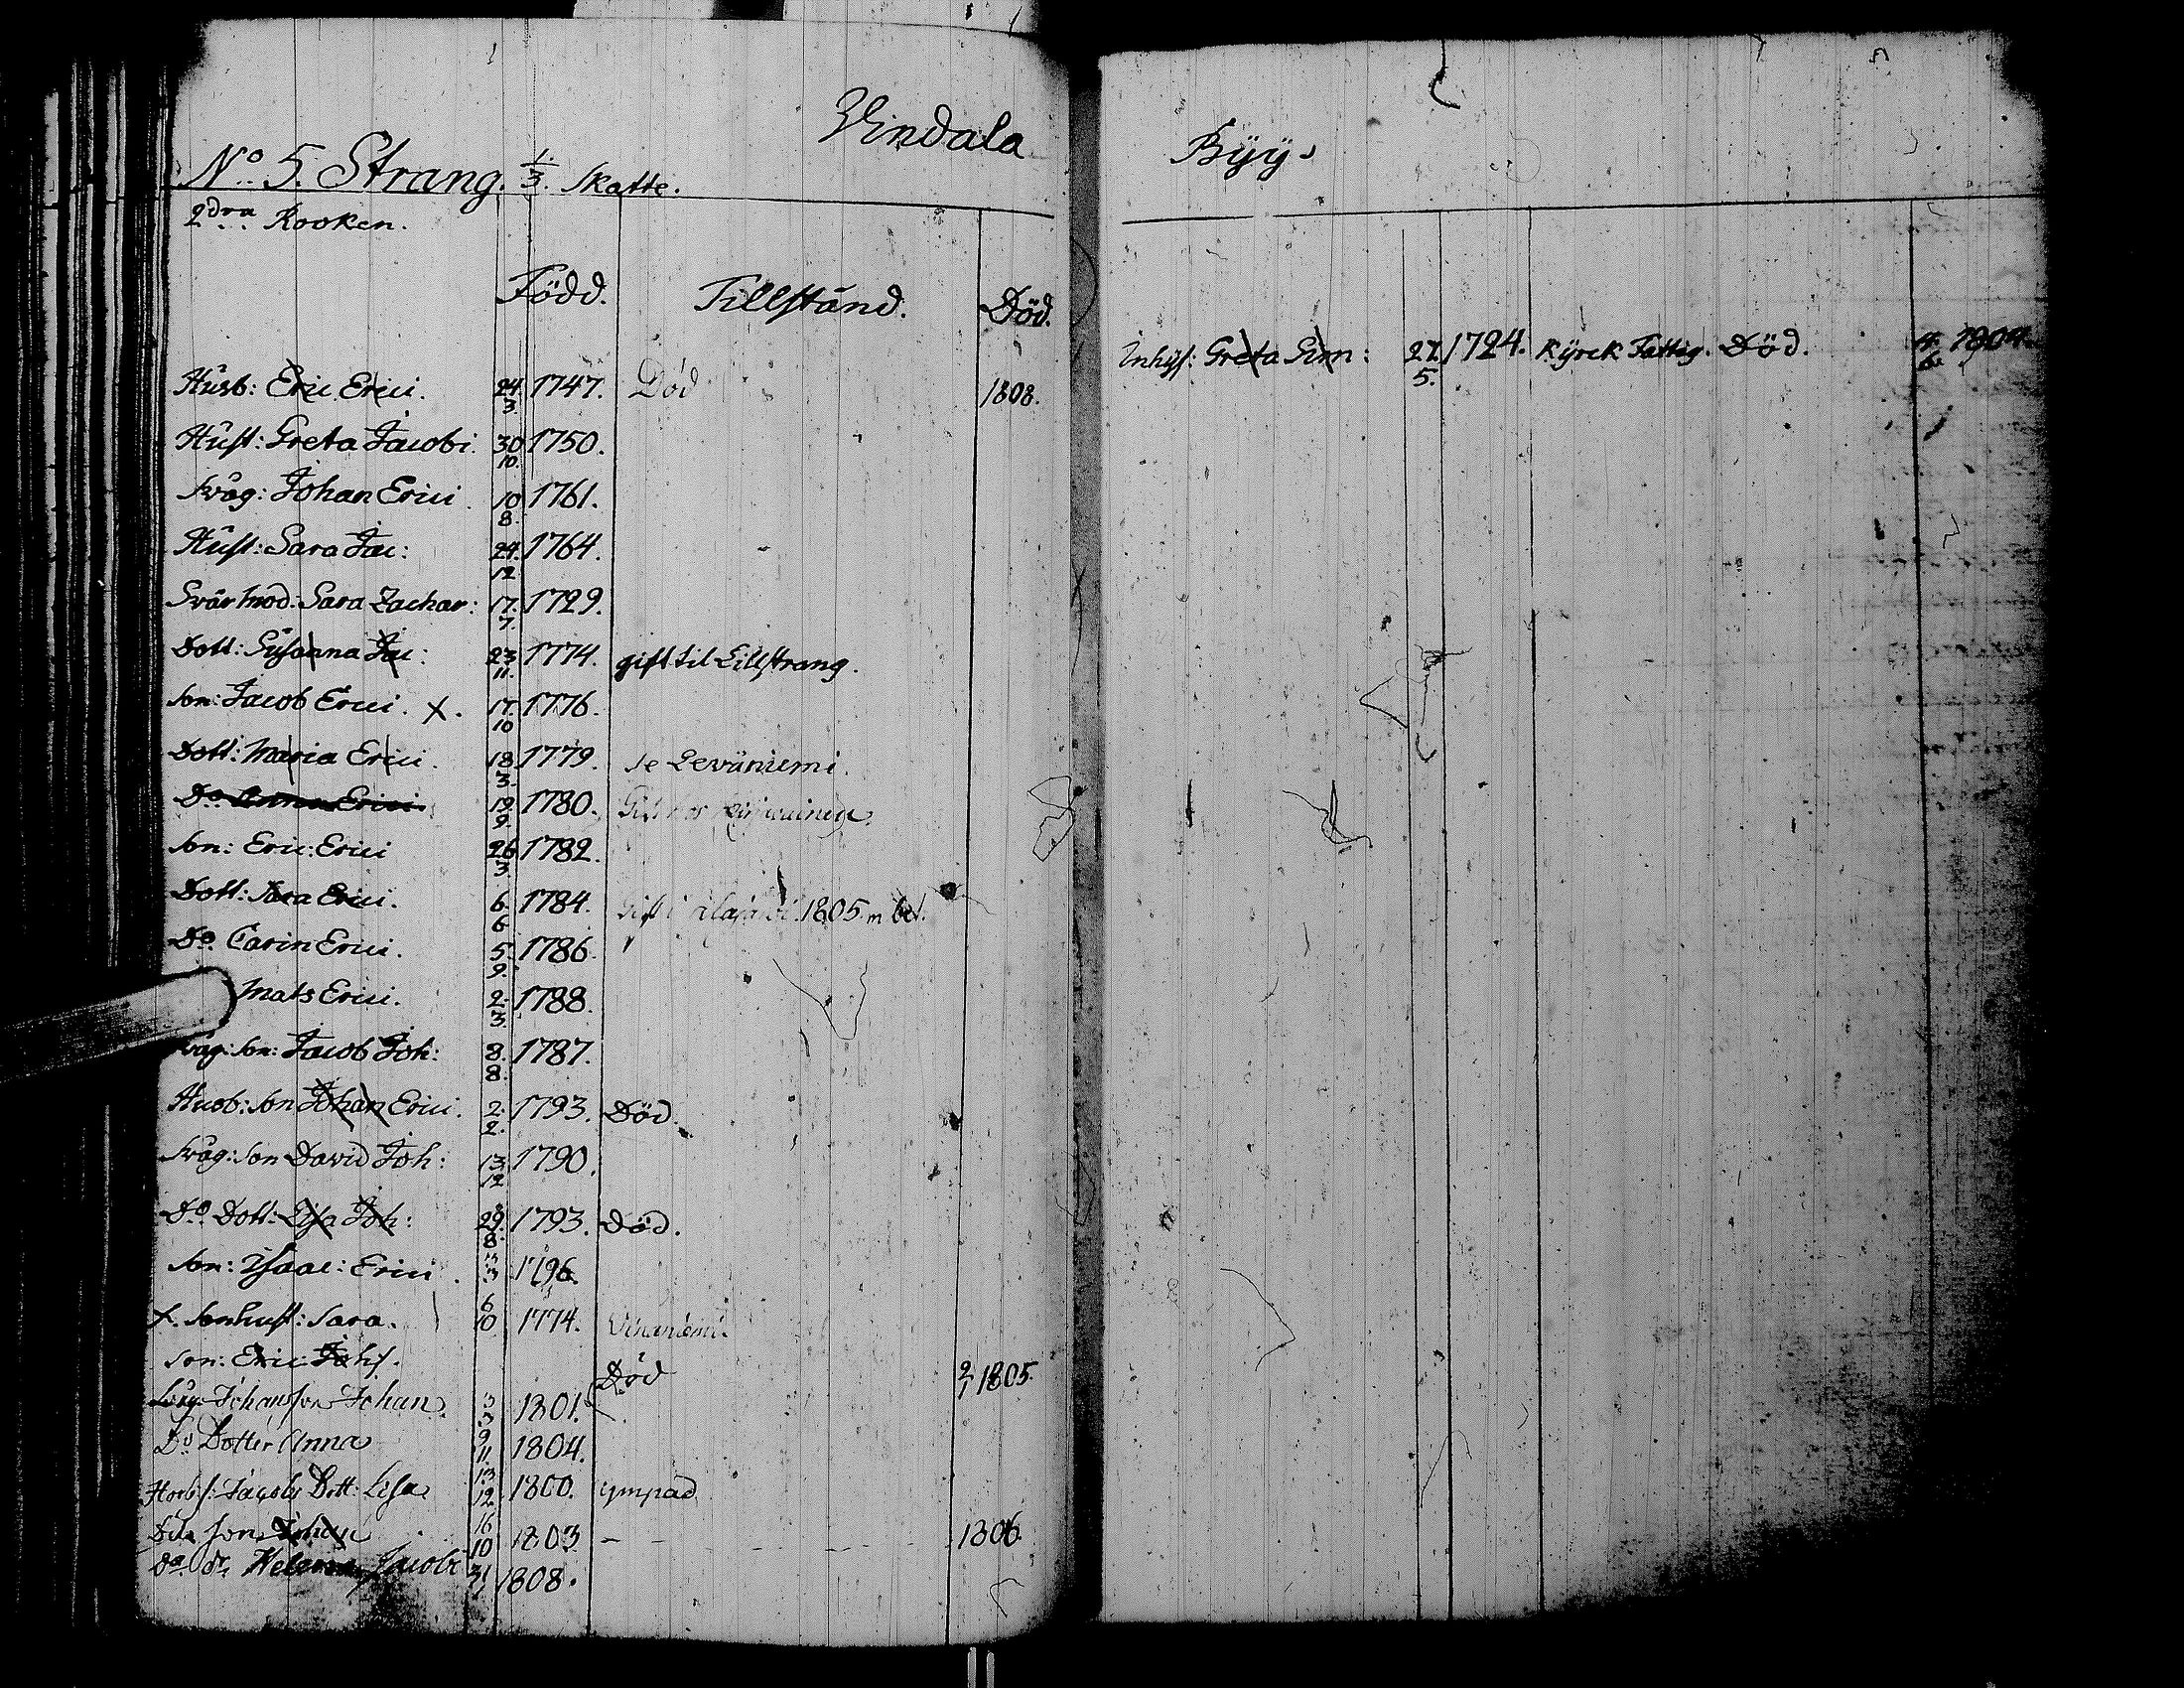 Vindala
No 5. Strang. 1/3. Skatte.
2dra Rooken.
Född. Tillstånd. Död.
Husb: Eric Erici. 24. 3. 1747. Död 1808.
Hust: Greta Jacobi. 30 10. 1750.
Svåg: Johan Erici. 10 8. 1761.
Hust: Sara Jac: 24. 12 1764.
Svär mod: Sara Zachar: 17. 7. 1729.
Dott: Susanna Jac: 23 11. 1774. gift til Lillstrang.
Son: Jacob Erici. X. 17. 10 1776.
Dott: Maria Erici. 18. 3. 1779. se Leväniemi.
Do Anna Erici. 19. 9. 1780.
Son: Eric: Erici 26 3. 1782.
Dott: Sara Erici. 6. 6 1784. Gift i 1805. m bet.
Do Carin Erici. 5. 9. 1786.
Mats Erici. 2. 3. 1788.
Svåg: Son: Jacob Joh: 8. 8. 1787.
Husb: Son Johan Erici. 2. 2. 1793. Död.
Svåg: Son David Joh: 13. 12 1790.
Do Dott: Lisa Joh: 29. 8. 1793. Död.
Son: Isaac: Erici. 3 3 1796.
X. Sonhust: Sara. 6 10 1774.
Son: Eric Johs. Död 2/1 1805.
Svåg: Johans Son Johan. 3 3 1801.
Do Dotter Anna 9 11. 1804.
Jacobs Dott: Lisa 13 12 1800. ympad
Dito Son Johan 16 10 1803 — 1806.
do dr Helena Jacobi 31 1808.
Byy.
Inhys: Greta Sim: 27. 5. 1724. Kyrck Fattig. Död. 1804.